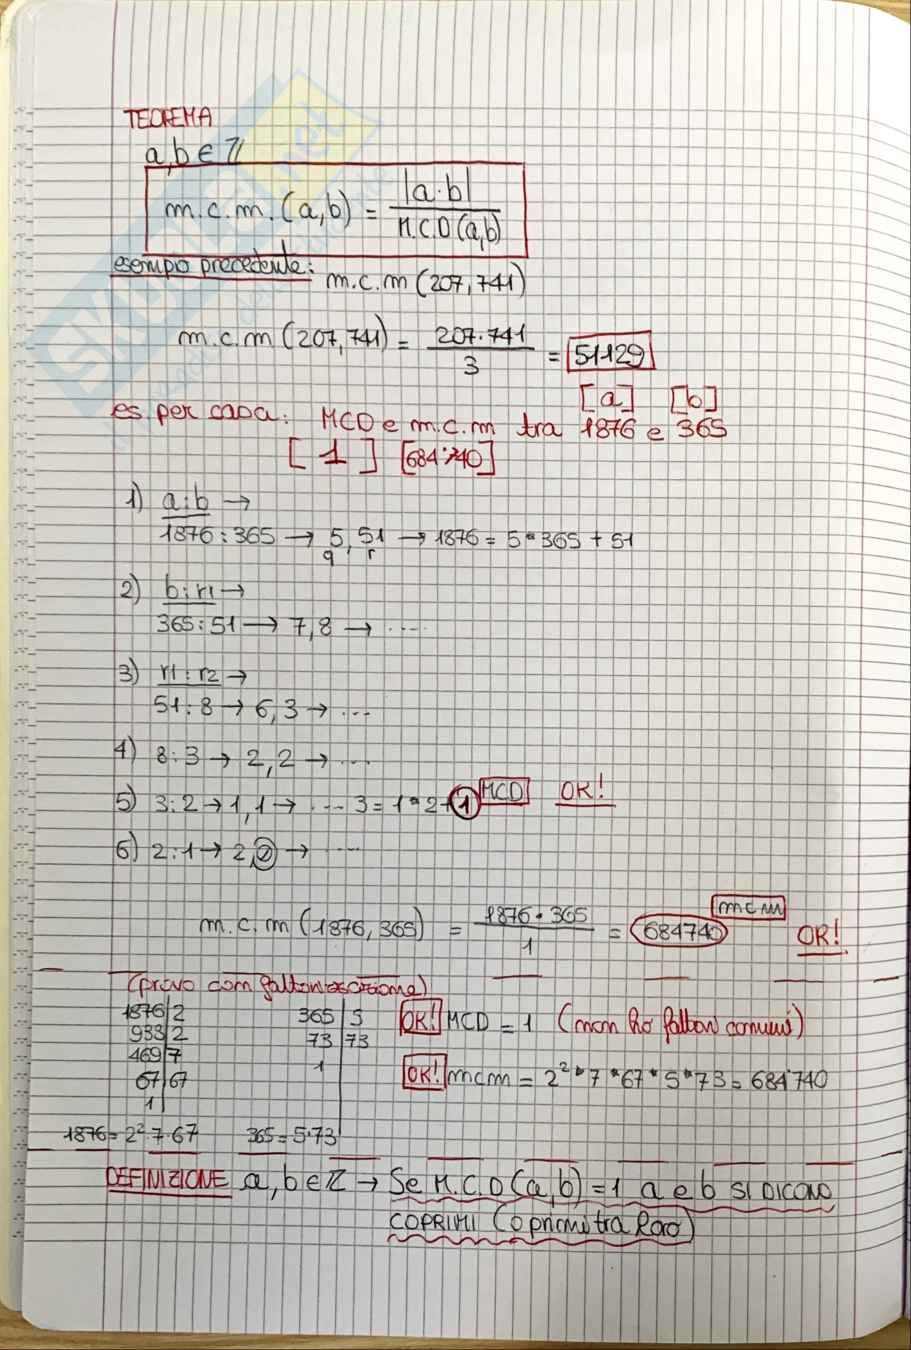 TEOREMA
a,b ∈ ℤ
m.c.m.(a,b) = |a·b| / M.C.D(a,b)
esempo precedente: m.c.m (207,741)
m.c.m (207,741) = 207·741 / 3 = 51129
[a] [b]
es per casa: MCD e m.c.m tra 1876 e 365
[1] [684'740]
1) a:b →
1876:365 → 5,51 → 1876 = 5·365 + 51
q r
2) b:r1 →
365:51 → 7,8 → ....
3) r1:r2 →
51:8 → 6,3 → ...
4) 8:3 → 2,2 → ...
5) 3:2 → 1,1 → .... 3 = 1·2+1 MCD OK!
6) 2:1 → 2, → ....
mcm
m.c.m (1876, 365) = 1876·365 / 1 = 684740 OK!
(provo com fattorizzazione)
1876|2 365|5 OK! MCD = 1 (mom ho fattori comuni)
938|2 73|73
469|7 1
67|67 OK! mcm = 2²·7·67·5·73 = 684'740
1
1876 = 2²·7·67 365 = 5·73
DEFINIZIONE a,b ∈ ℤ → Se M.C.D(a,b) = 1 a e b SI DICONO
COPRIMI (o primi tra loro)
SKUOLA.net